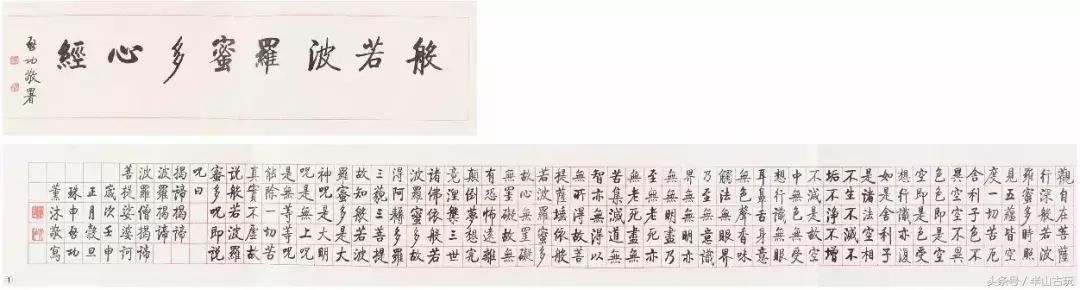 般若波羅蜜多心經
啓功敬署
觀自在菩薩
行深般若波
羅蜜多時照
見五蘊皆空
度一切苦厄
舍利子色不
異空空不異
色色即是空
空即是色受
想行識亦復
如是舍利子
是諸法空相
不生不滅不
垢不淨不增
不減是故空
中無色無受
想行識無眼
耳鼻舌身意
無色聲香味
觸法無眼界
乃至無意識
界無無明亦
無無明盡乃
至無老死亦
無老死盡無
苦集滅道無
智亦無得以
無所得故菩
提薩埵依般
若波羅蜜多
故心無罣礙
無罣礙故無
有恐怖遠離
顛倒夢想究
竟涅槃三世
諸佛依般若
波羅蜜多故
得阿耨多羅
三藐三菩提
故知般若波
羅蜜多是大
神呪是大明
呪是無上呪
是無等等呪
能除一切苦
真實不虛故
說般若波羅
蜜多呪即說
呪曰
揭諦揭諦
波羅揭諦
波羅僧揭諦
菩提娑婆訶
歲次壬申
正月穀旦
珠申啓功
薰沐敬寫
①
头条号 / 半山古玩